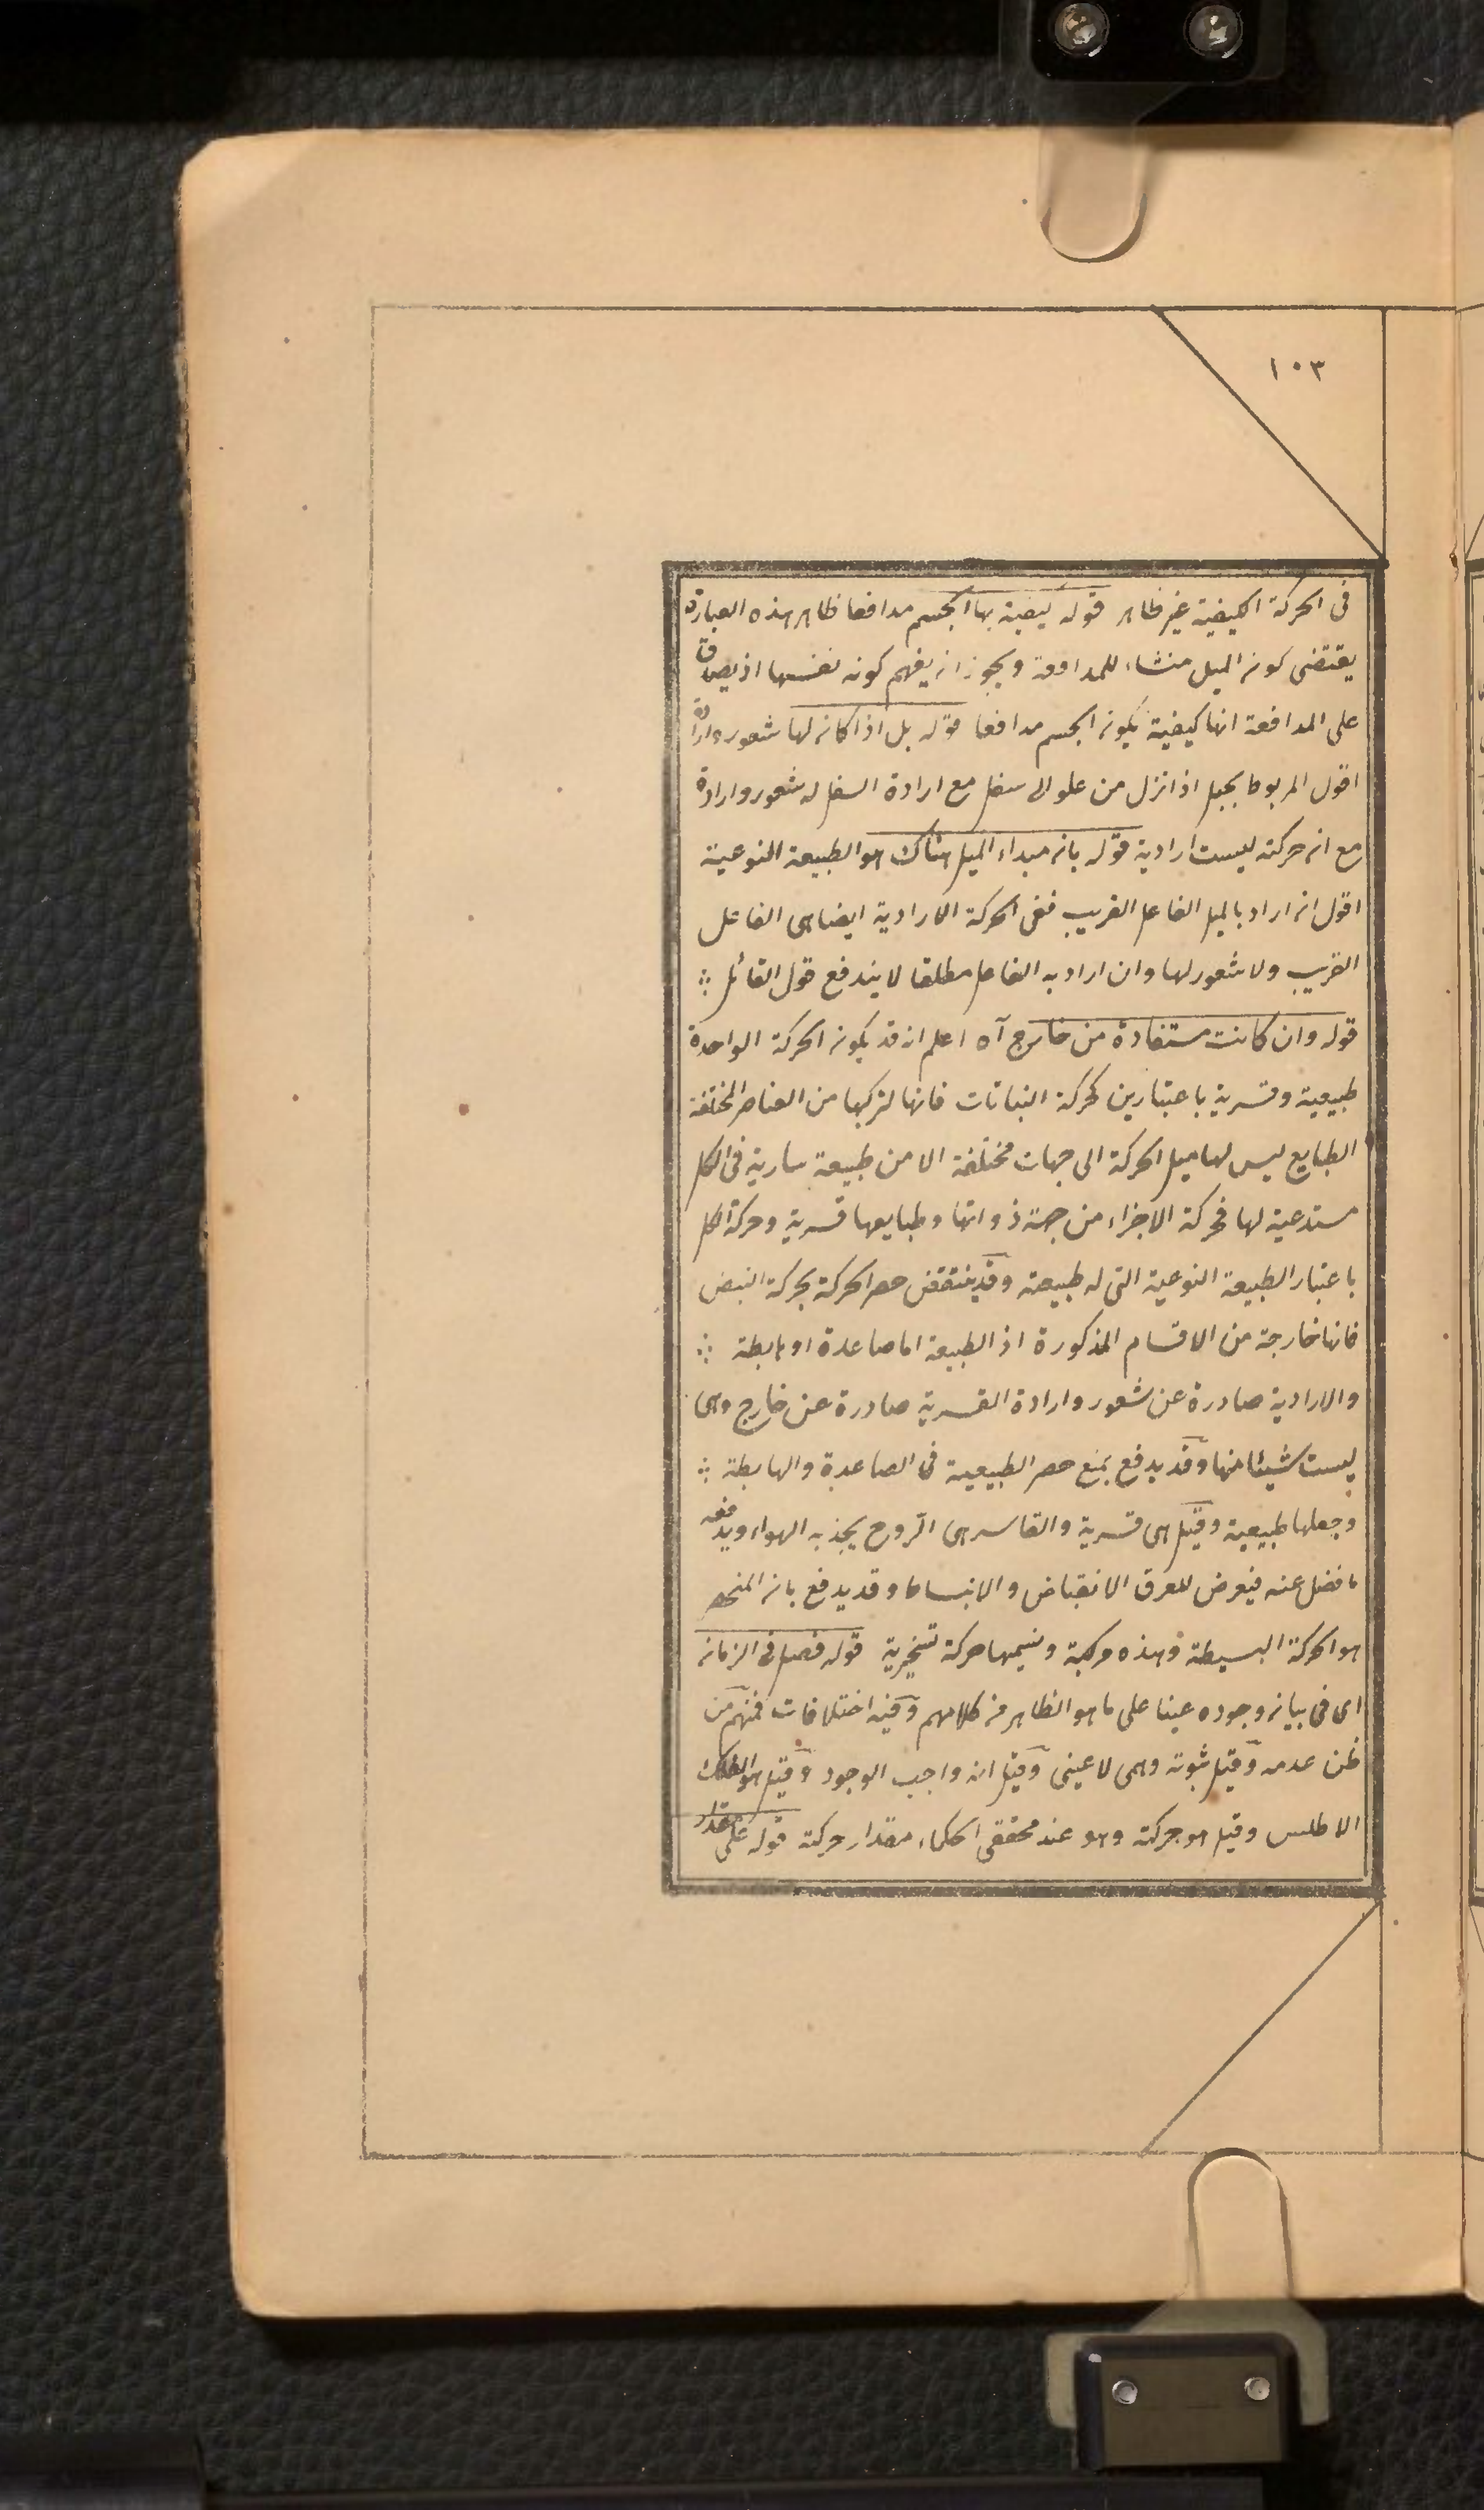 ١٠٣
فى الحركة الكيفية غير ظاهر قوله كيفية بها الجسم مدافعا ظاهر هذه العبارة
يقتضى كون الميل منشاء للمدافعة ويجوز ان يفهم كونه نفسها اذ يصدق
على المدافعة انها كيفية يكون الجسم مدافعا قوله بل اذا كان لها شعور وارادة
اقول المربوط بحبل اذا نزل من علو الى سفل مع ارادة السفل له شعور وارادة
مع ان حركته ليست ارادية قوله بان مبداء الميل هناك هو الطبيعة النوعية
اقول ان اراد بالميل الفاعل القريب ففى الحركة الارادية ايضا هى الفاعل
القريب ولا شعور لها وان اراد به الفاعل مطلقا لا يندفع قول القائل ∴
قوله وان كانت مستفادة من خارج آه اعلم انه قد يكون الحركة الواحدة
طبيعية وقسرية باعتبارين كحركة النباتات فانها لتركبها من العناصر المختلفة
الطبايع ليس لها ميل الحركة الى جهات مختلفة الا من طبيعة سارية فى الكل
مستدعية لها فحركة الاجزاء من جهة ذواتها وطبايعها قسرية وحركة الكل
باعتبار الطبيعة النوعية التى له طبيعية وقد ينتقض حصر الحركة بحركة النبض
فانها خارجة من الاقسام المذكورة اذ الطبيعة اما صاعدة او هابطة ∴
والارادية صادرة عن شعور وارادة القسرية صادرة عن خارج وهى
ليست شيئا منها وقد يدفع بمنع حصر الطبيعية فى الصاعدة والهابطة ∴
وجعلها طبيعية وقيل هى قسرية والقاسر هى الروح يجذبه الهواء ويدفعه
ما فضل عنه فيعرض للعرق الانقباض والانبساط وقد يدفع بان المنحصر
هو الحركة البسيطة وهذه مركبة ونسيمها حركة تسخيرية قوله فصل فى الزمان
اى فى بيان وجوده عينا على ما هو الظاهر من كلامهم وفيه اختلافات فمنهم من
ظن عدمه وقيل ثبوته وهمى لا عينى وقيل انه واجب الوجود وقيل هو الفلك
الاطلس وقيل هو حركته وهو عند محققى الحكماء مقدار حركته قوله على مقدار